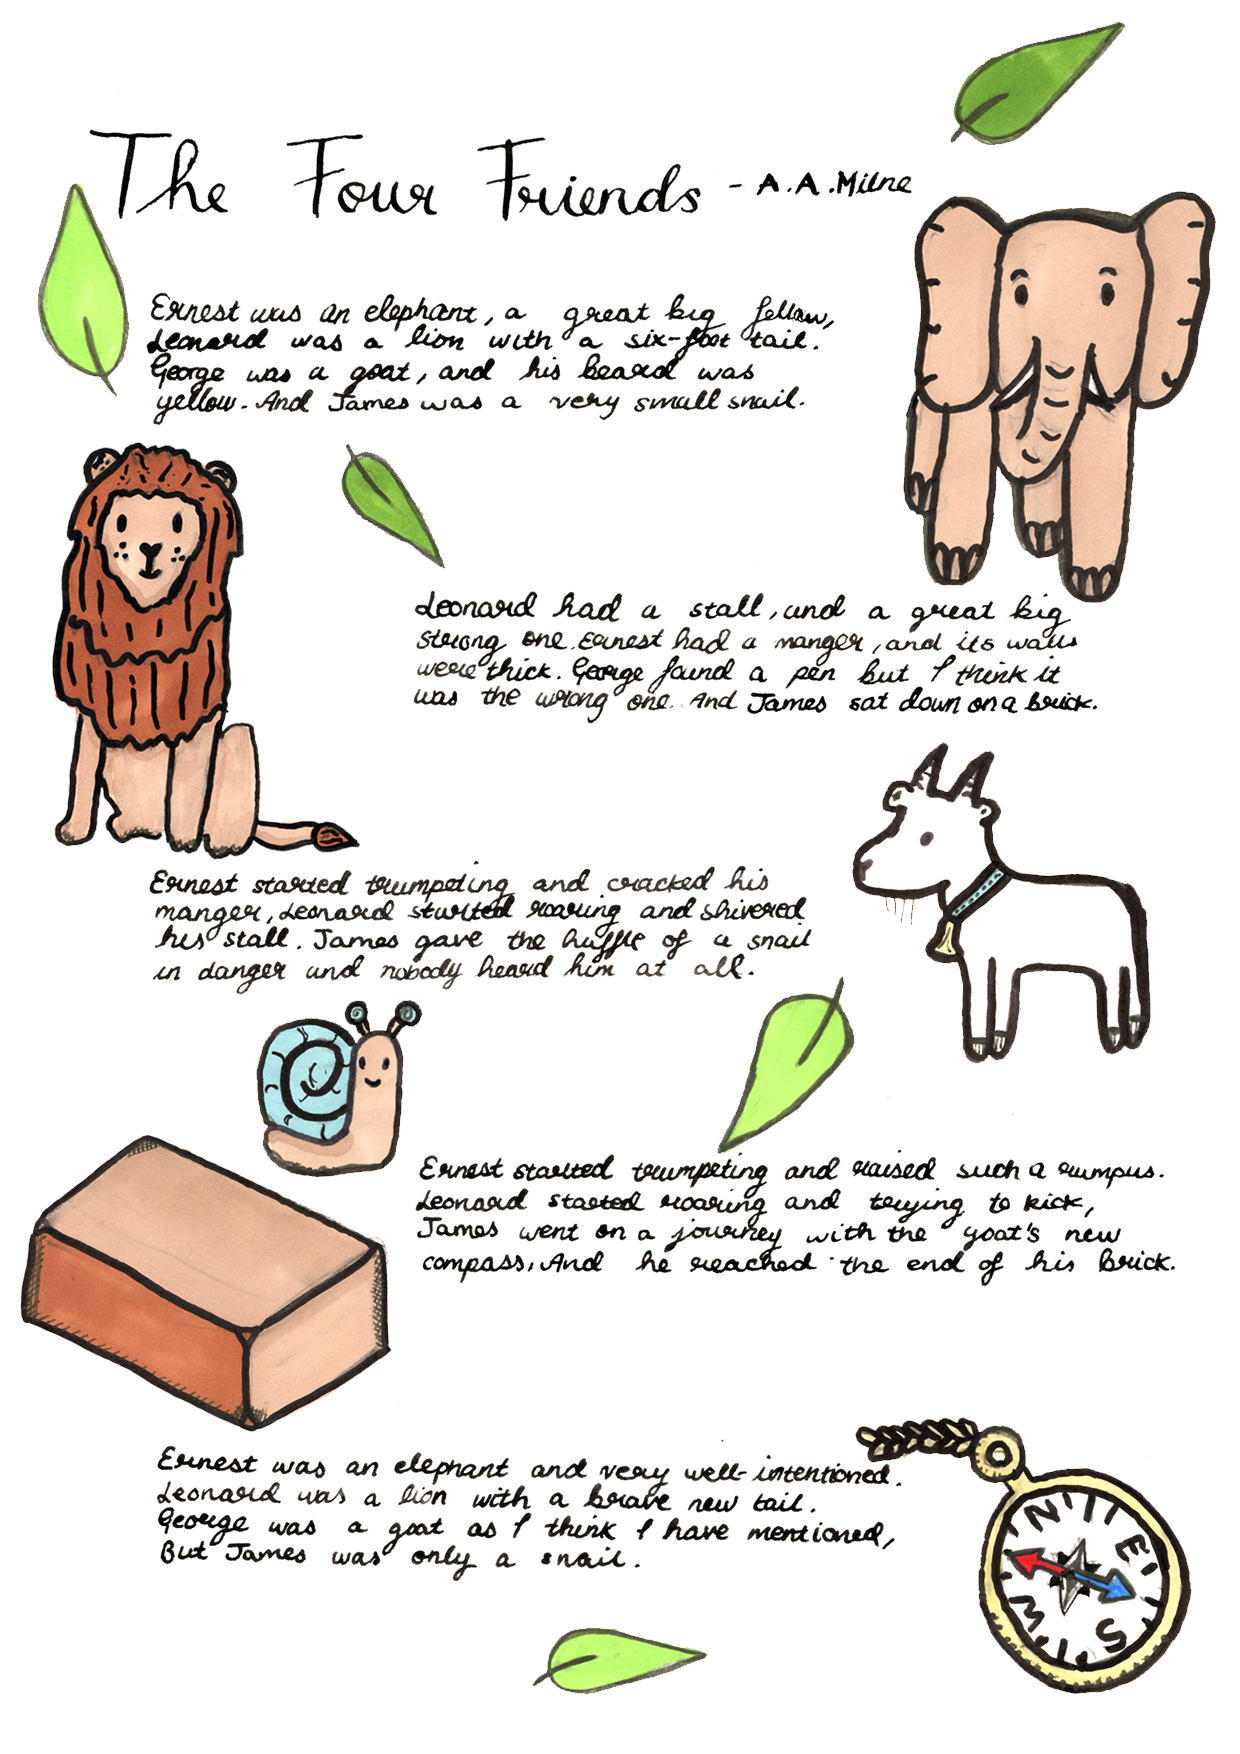 The Four Friends - A.A.Milne
Ernest was an elephant, a great big fellow,
Leonard was a lion with a six-foot tail.
George was a goat, and his beard was
yellow. And James was a very small snail.
Leonard had a stall, and a great big
strong one. Ernest had a manger, and its walls
were thick. George found a pen but I think it
was the wrong one. And James sat down on a brick.
Ernest started trumpeting and cracked his
manger, Leonard started roaring and shivered
his stall. James gave the huffle of a snail
in danger and nobody heard him at all.
Ernest started trumpeting and raised such a rumpus.
Leonard started roaring and trying to kick,
James went on a journey with the goat's new
compass, And he reached the end of his brick.
Ernest was an elephant and very well-intentioned.
Leonard was a lion with a brave new tail.
George was a goat as I think I have mentioned,
But James was only a snail.
N
E
W
S